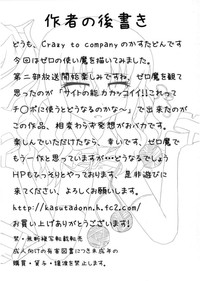 作者の後書き
どうも、Crazy to companyのかすたどんです
今回はゼロの使い魔を描いてみました。
第二部放送開始楽しみですね、ゼロ魔を観て
思ったのが「サイトの能力カッコイイ!!これって
チ○ポに使うとどうなるのかな～」で出来たのが
この作品、相変わらず発想がおバカです。
楽しんでいただけたなら、幸いです、ゼロ魔で
もう一作と思っていますが…どうなるでしょう
HPもひっそりやっております、是非遊びに
来てください、よろしくお願いします。
http://kasutadonn.h.fc2.com/
お買い上げありがとうございます!
禁・無断複写転載転売
成人向けの有害図書につき未成年の
購買・貸与・譲渡を禁止します。